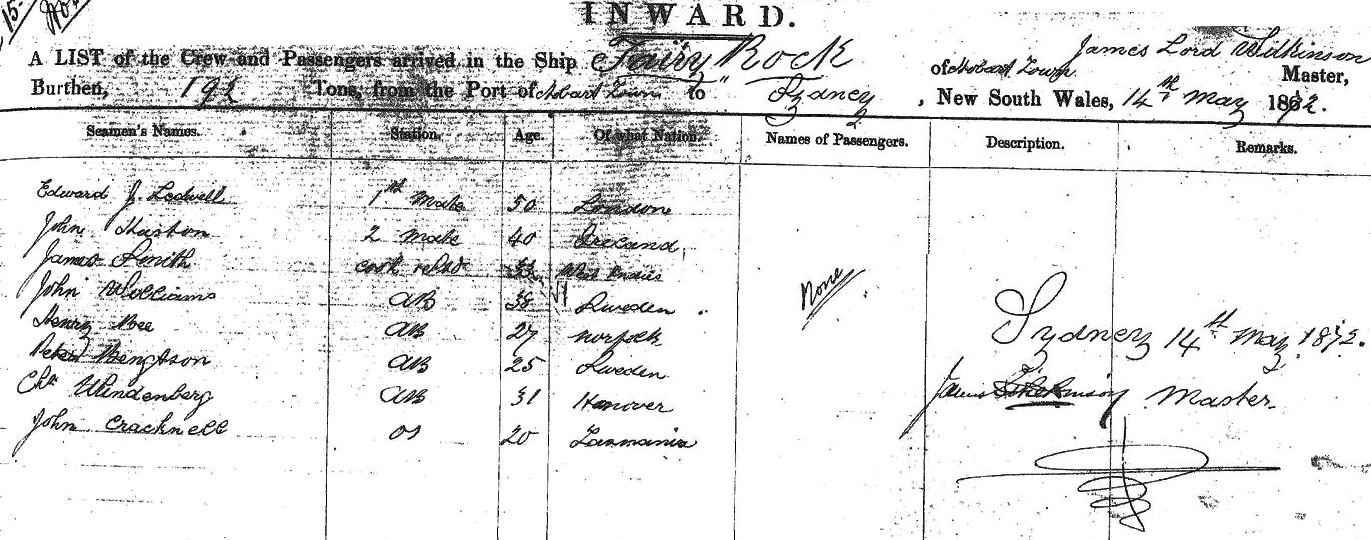 15-
INWARD.
A LIST of the Crew and Passengers arrived in the Ship Fairy Rock of Hobart Town James Lord Wilkinson Master,
Burthen, 192 Tons, from the Port of Hobart Town to Sydney, New South Wales, 14th May 1872.
Seamen's Names. Station. Age. Of what Nation. Names of Passengers. Description. Remarks.
Edward J. Ledwell 1st Mate 50 London
John Huston 2 Mate 40 Ireland
James Smith cook 33 West Indies
John Williams AB 38 Sweden
Henry AB 27 Norfolk
Peter Bengtson AB 25 Sweden
Chs Windenberg AB 31 Hanover
John Cracknell OS 20 Tasmania
None
Sydney 14th May 1872.
James Wilkinson Master.